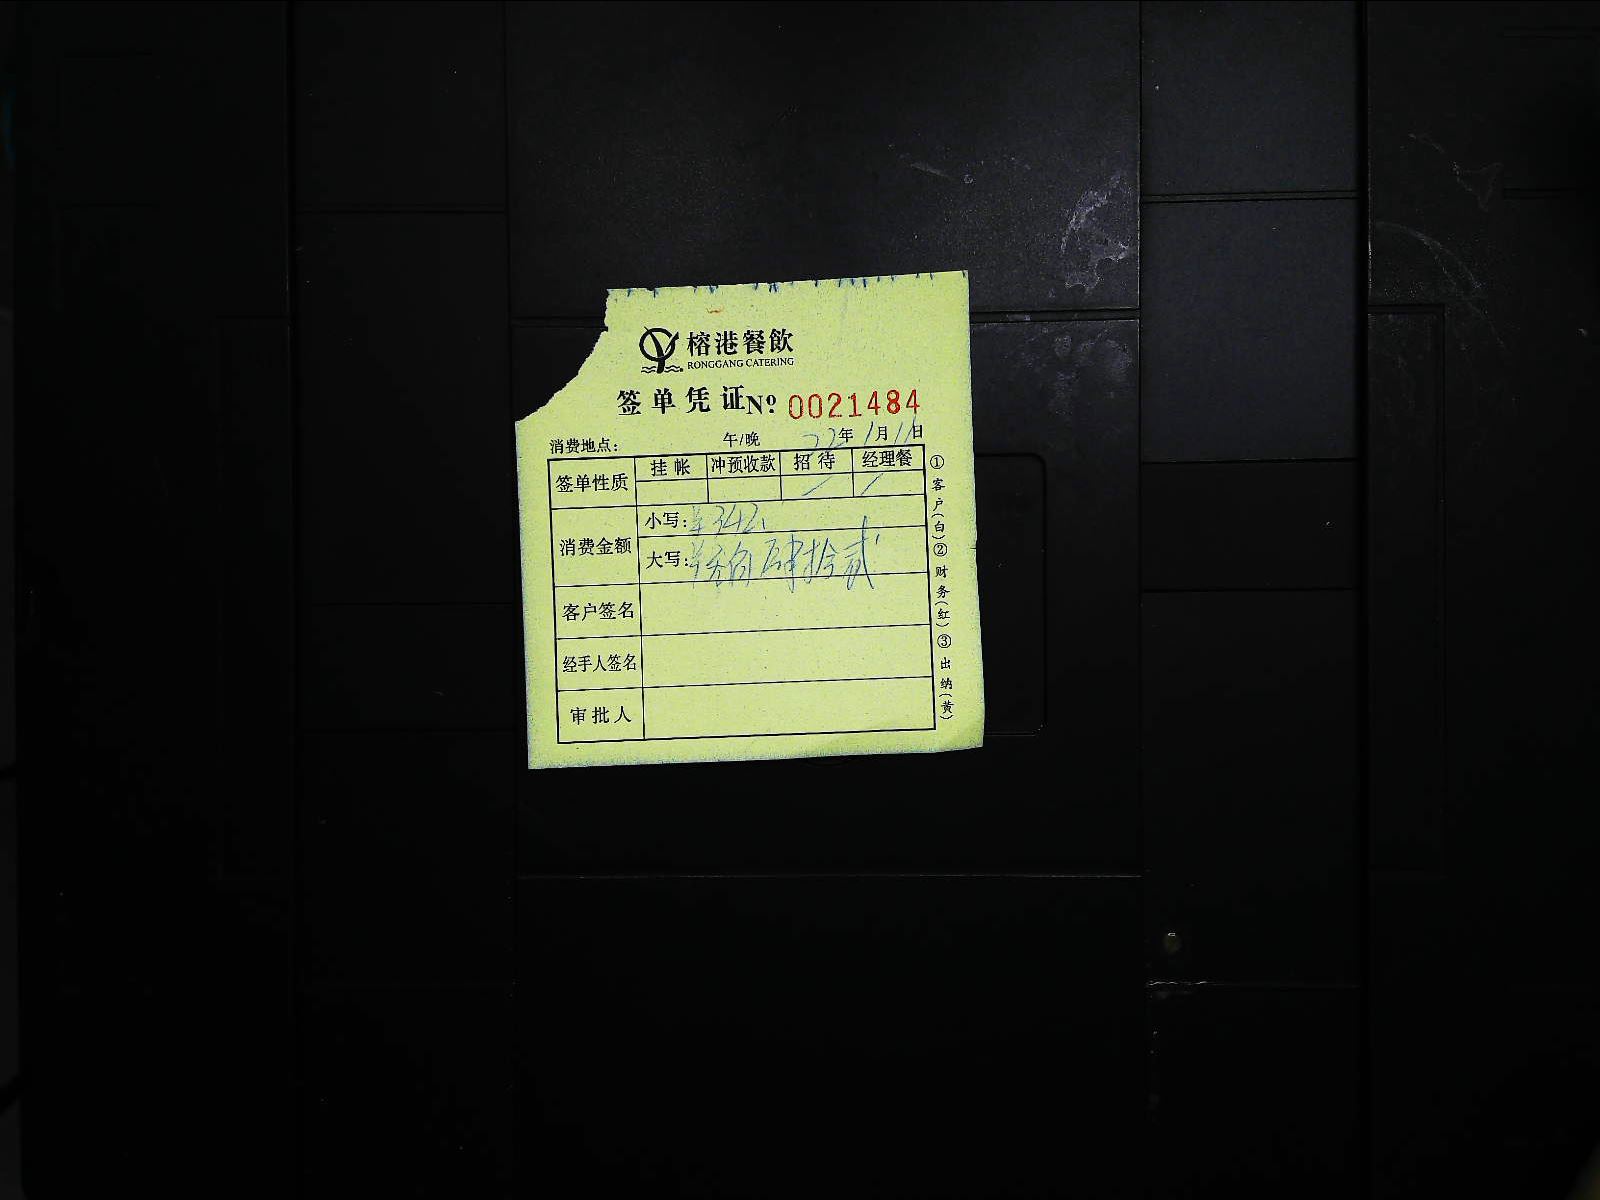 榕港餐飲
RONGGANG CATERING
签单凭证 Nº 0021484
消费地点: 午/晚 22年1月11日
签单性质 挂帐 冲预收款 招待 经理餐
消费金额 小写: ¥342
大写: 叁佰肆拾贰
客户签名
经手人签名
审批人
①客户(白)②财务(红)③出纳(黄)